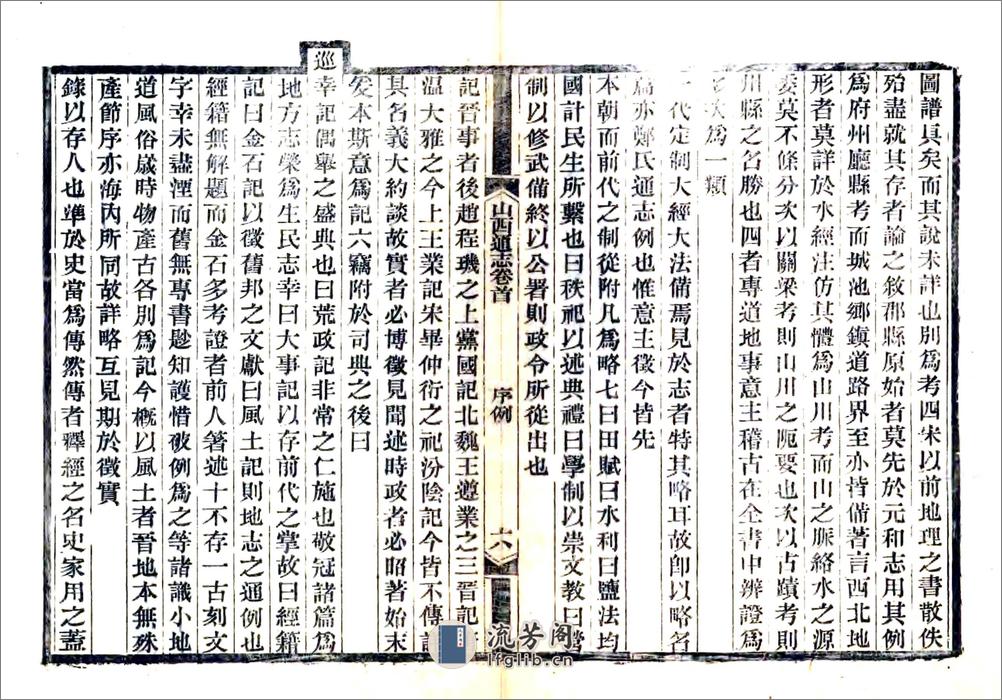 圖譜具矣而其說未詳也別為考四宋以前地理之書散佚
殆盡就其存者論之敘郡縣原始者莫先於元和志用其例
為府州廳縣考而城池鄉鎮道路界至亦皆備著言西北地
形者莫詳於水經注仿其體為山川考而山之脈絡水之源
委莫不條分次以關梁考則山川之阨要也次以古蹟考則
川縣之名勝也四者專道地事意主稽古在全書中辨證為
次為一類
一代定制大經大法備焉見於志者特其略耳故即以略名
焉亦鄭氏通志例也惟意主徵今皆先
本朝而前代之制從附凡為略七曰田賦曰水利曰鹽法均
國計民生所繫也曰秩祀以述典禮曰學制以崇文教曰營
制以修武備終以公署則政令所從出也
山西通志卷首
序例
六
記晉事者後趙程璣之上黨國記北魏王遵業之三晉記
溫大雅之今上王業記宋畢仲衍之祀汾陰記今皆不傳
其名義大約談故實者必博徵見聞述時政者必昭著始末
爰本斯意為記六竊附於司典之後曰
巡幸記偶舉之盛典也曰荒政記非常之仁施也敬冠諸篇為
地方志榮為生民志幸曰大事記以存前代之掌故曰經籍
記曰金石記以徵舊邦之文獻曰風土記則地志之通例也
經籍無解題而金石多考證者前人著述十不存一古刻文
字幸未盡湮而舊無專書尟知護惜破例為之等諸識小地
道風俗歲時物產古各別為記今概以風土者晉地本無殊
產節序亦海內所同故詳略互見期於徵實
錄以存人也準於史當為傳然傳者釋經之名史家用之蓋
流芳阁
lfglib.cn